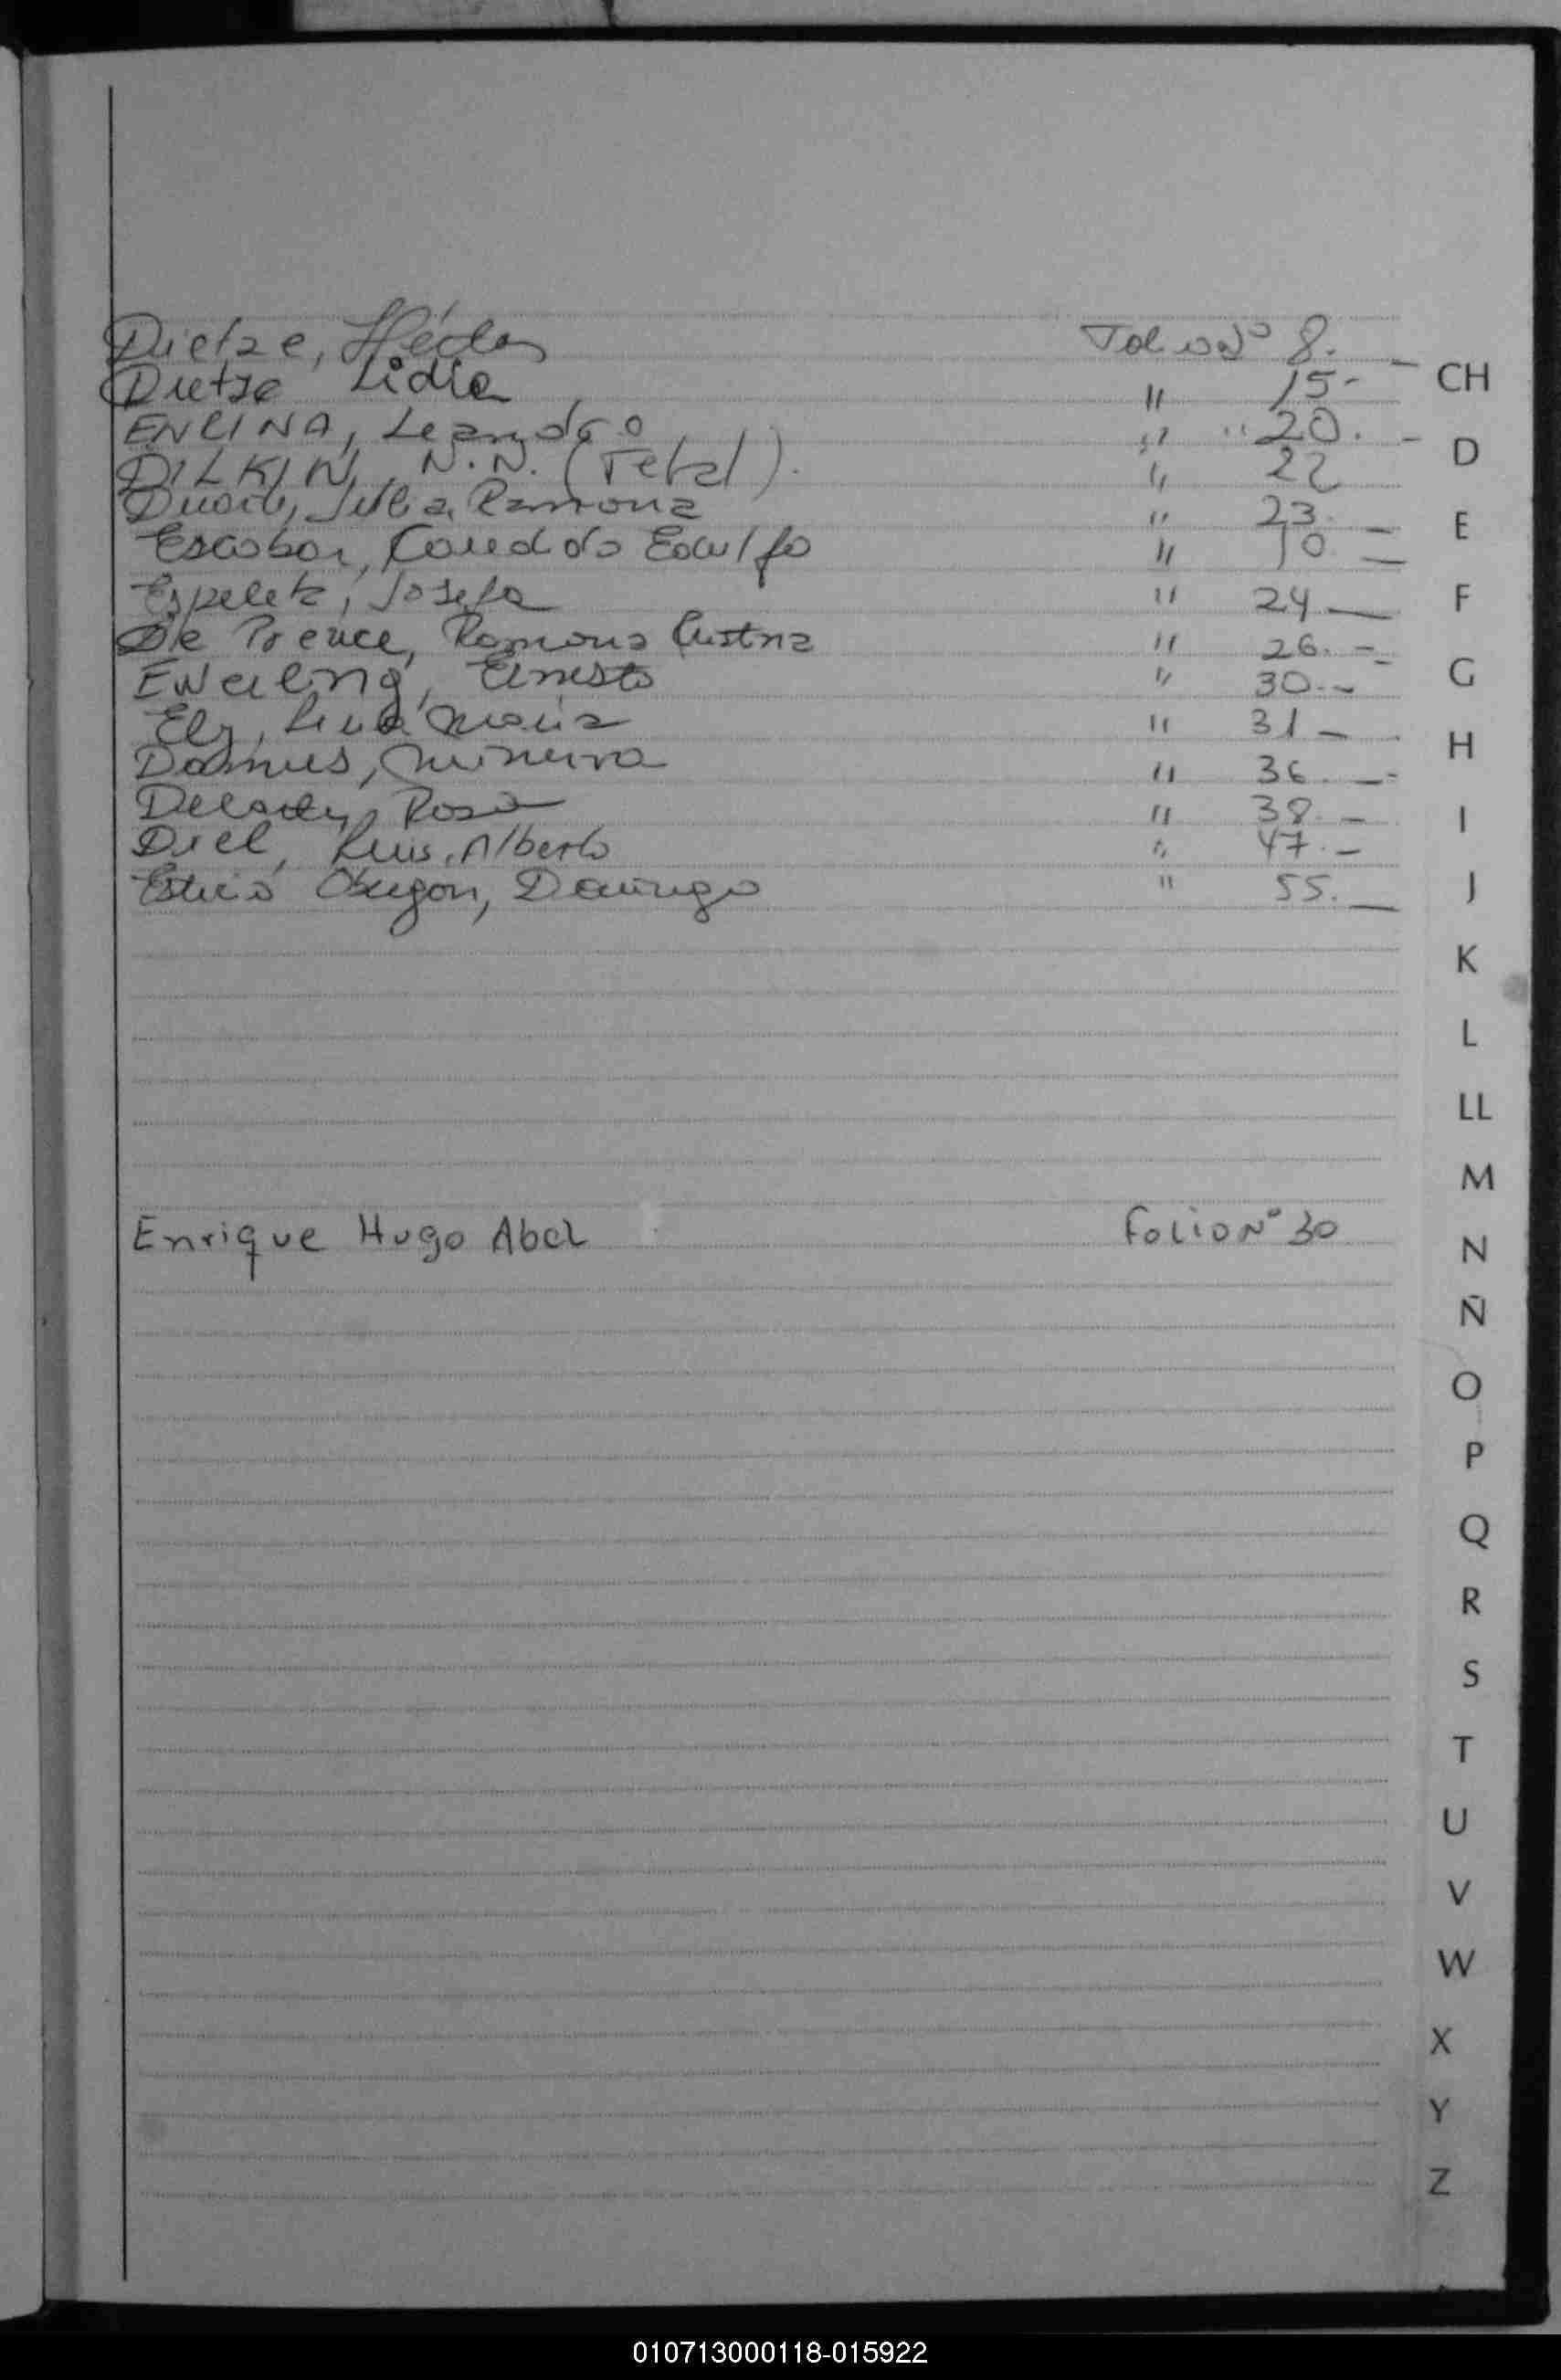 Dietze, Héctor Folio Nº 8.-
Dietze Lidia " 15-
ENCINA, Leandro " " 20.-
DILKIN, N.N. (Fetal). " 22
Duarte, Julia Ramona " 23.-
Escobar, Candido " 10 =
Espeleta, Josefa " 24.—
De Prence, Ramona Cristina " 26.-
Eweling, Ernesto " 30.-
Ely, María " 31-
Dahmus, Minerva " 36.—
Rosa " 38.-
Diel, Luis Alberto " 47.-
Obregon, Domingo " 55.—
Enrique Hugo Abel Folio Nº 30
CH
D
E
F
G
H
I
J
K
L
LL
M
N
Ñ
O
P
Q
R
S
T
U
V
W
X
Y
Z
010713000118-015922